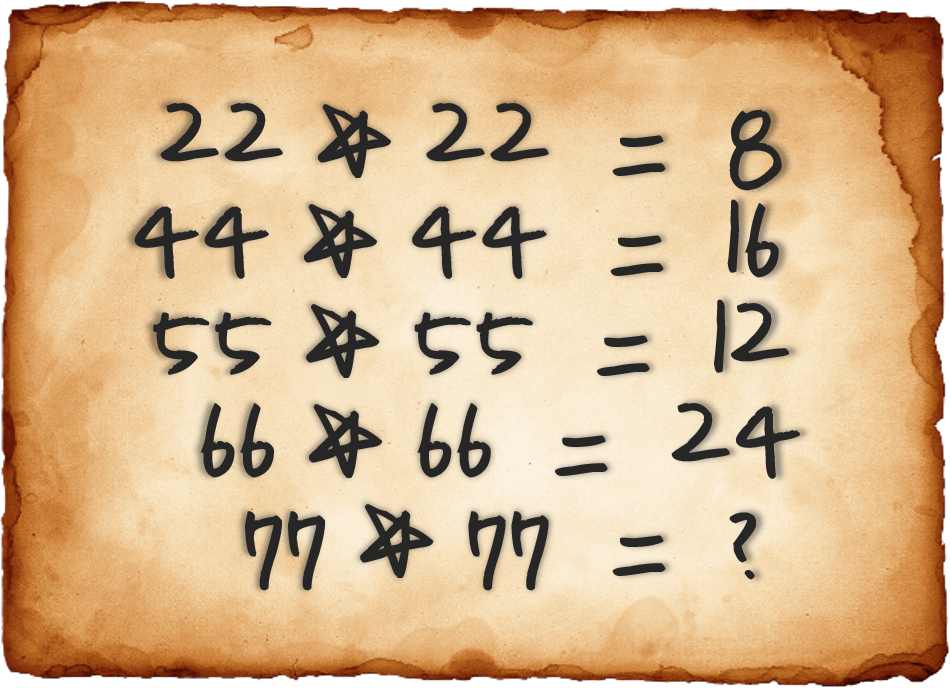 22 ☆ 22 = 8
44 ☆ 44 = 16
55 ☆ 55 = 12
66 ☆ 66 = 24
77 ☆ 77 = ?